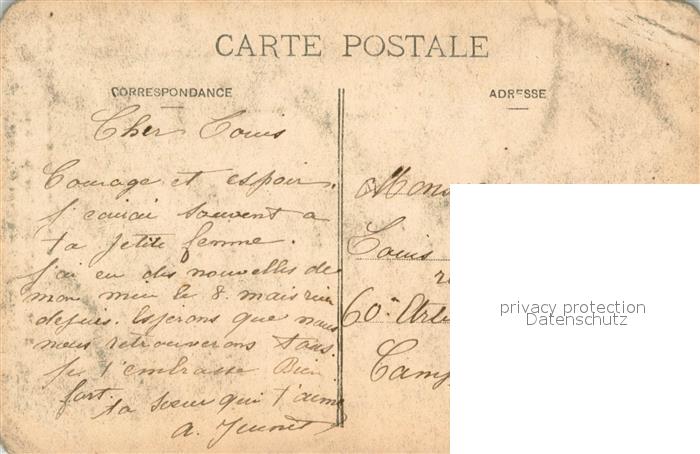 CARTE POSTALE
CORRESPONDANCE
ADRESSE
Cher Louis
Courage et espoir.
J'ecrirai souvent a
ta petite femme.
J'ai eu des nouvelles de
mon mien le 8. mais rien
depuis. Esperons que nous
nous retrouverons tous.
Je t'embrasse Bien
fort.
ta sœur qui t'aime
A.
Louis
60e
Camp
privacy protection
Datenschutz